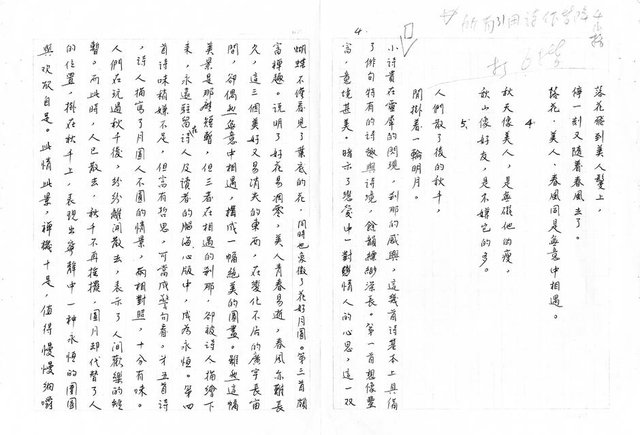 所有引用詩作皆降4小格
4.
落花飛到美人髮上，
停一刻又隨着春風去了。
落花、美人、春風同是無意中相遇。
4
秋天像美人，是無礙他的瘦，
秋山像好友，是不嫌它的多。
5.
人們散了後的秋千，
閒掛着一輪明月。
小詩貴在靈犀的閃現，剎那的感興，這幾首詩基本上具備
了俳句特有的詩趣與詩境，餘韻綿渺深長。第一首想像豐
富，意境甚美，暗示了戀愛中一對情人的心思，這一双
蝴蝶不僅看見了葉底的花，同時也象徵了花好月圓。第三首頗
富禪趣。說明了好花易凋零，美人青春易逝，春風亦難長
久，這三個美好又易消失的東西，在變化不居的廣宇長宙
間，卻偶然無意中相遇，構成一幅絕美的圖畫。雖然這幅
美景是那麼短暫，但三者在相遇的剎那，卻被詩人描繪下
來，永遠駐留在詩人及讀者的腦海心版中，成為永恆。第四
首詩味稍嫌不足，但富有哲思，可當成警句看。第五首詩
，詩人描寫了月圓人不圓的情景，兩相對照，十分有味。
人們在玩過秋千後，紛紛離開散去，表示了人間歡樂的短
暫。而此時，人已散去，秋千不再搖擺，圓月却代替了人
的位置，掛在秋千上，表現出寧靜中一種永恆的團圓
與欢欣自是。此情此景，禪機十足，值得慢慢細嚼